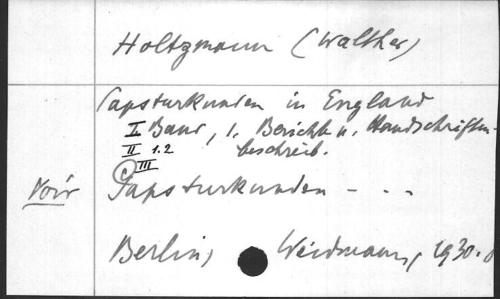 Holtzmann (Walther)
Papsturkunden in England
I Band, 1. Berichte u. Handschriften-
II 1.2 beschreib.
III
Voir Papsturkunden - . .
Berlin, Weidmann, 1930.